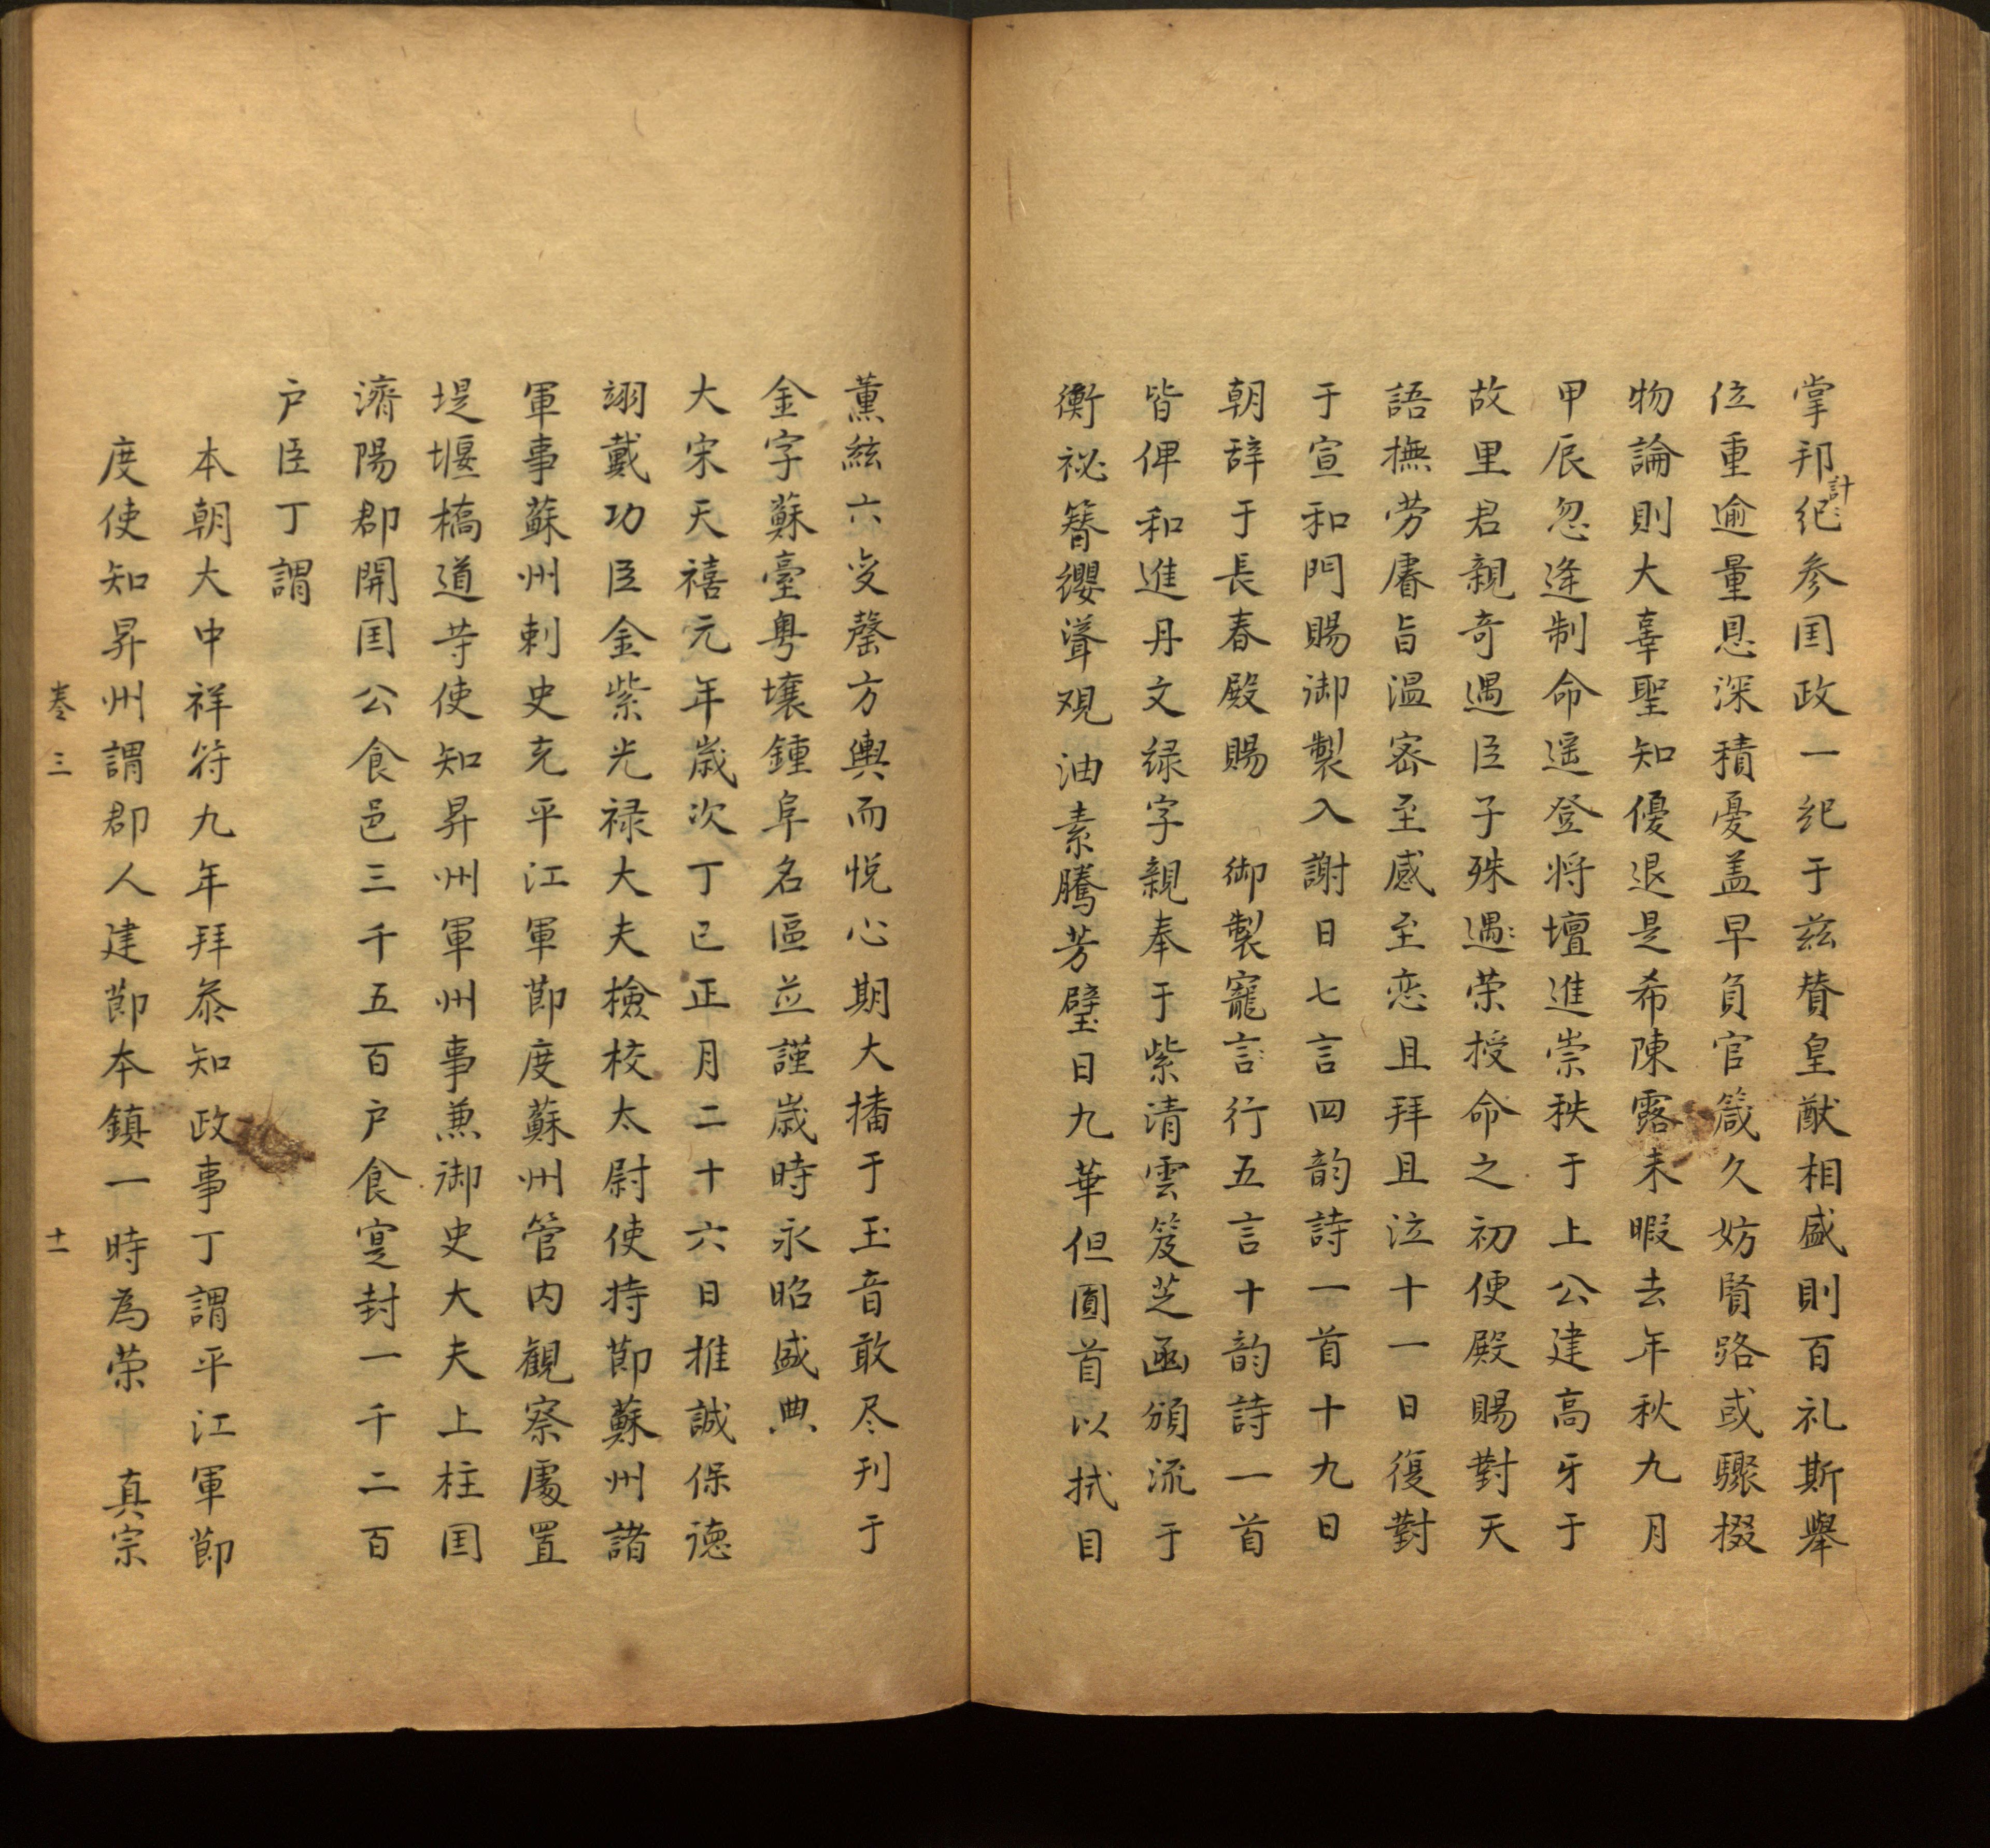 掌邦紀計参囯政一紀于兹賛皇猷相盛則百礼斯舉
位重逾量恩深積憂盖早負官箴久妨賢路或驟掇
物論則大辜聖知優退是希陳露未暇去年秋九月
甲辰忽逢制命遥登将壇進崇秩于上公建高牙于
故里君親奇遇臣子殊遇荣授命之初便殿賜對天
語撫劳睿旨温密至感至恋且拜且泣十一日復對
于宣和門賜御製入謝日七言四韵詩一首十九日
朝辞于長春殿賜　御製寵言行五言十韵詩一首
皆俾和進丹文緑字親奉于紫清雲笈芝凾頒流于
衡祕簪纓聳观油素騰芳璧日九華但圎首以拭目
薫絃六变罄方輿而悦心期大播于玉音敢尽刊于
金字蘇臺粤壤鍾阜名區並謹歳時永昭盛典
大宋天禧元年歳次丁已正月二十六日推誠保徳
翊戴功臣金紫光禄大夫檢校太尉使持節蘇州諸
軍事蘇州刺史充平江軍節度蘇州管内観察處置
堤堰橋道等使知昇州軍州事兼御史大夫上柱囯
濟陽郡開囯公食邑三千五百户食寔封一千二百
户臣丁謂
本朝大中祥符九年拜叅知政事丁謂平江軍節
度使知昇州謂郡人建節本鎮一時為荣　真宗
卷三　十一